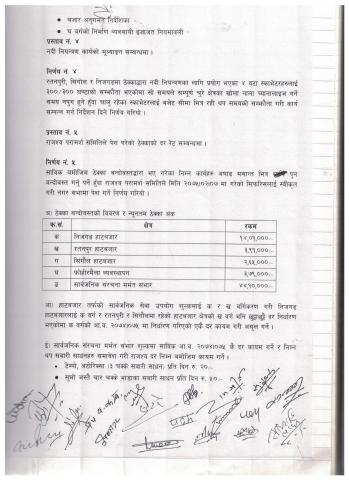 • बजार अनुगमन निर्देशिका
• घ वर्गको निर्माण व्यवसायी इजाजत नियमावली
प्रस्ताव नं. ४
नदी नियन्त्रण कार्यको मूल्यांकन सम्बन्धमा ।
निर्णय नं. ४
रतनपुर, सिंगौल र निजगढमा ठेक्काद्वारा नदी नियन्त्रणका लागि प्रयोग भएका ४ वटा स्काभेटरहरुलाई
२००/२०० घण्टाको सम्झौता भएकोमा सो समयले सम्पुर्ण चुरे क्षेत्रका खोला नाला च्यानलाइज गर्ने
समय नपुग हुने हुँदा चालु रहेका स्काभेटरलाई बजेट सीमा भित्र रही थप समयको सम्झौता गरी कार्य
सम्पन्न गर्न निर्देशन दिने निर्णय गरियो ।
प्रस्ताव नं. ५
राजश्व परामर्श समितिले पेश गरेको ठेक्काको दर रेट सम्बन्धमा ।
निर्णय नं. ५
साविक बमोजिम ठेक्का बन्दोवस्तद्वारा भए गरेका निम्न कार्यहरु अषाढ मसान्त भित्र पुन
बन्दोवस्त गर्नु पर्ने हुँदा राजश्व परामर्श समितिले मिति २०७५/०२/०७ मा गरेको सिफारिसलाई स्वीकृत
गरी नगर सभामा पेश गर्ने निर्णय गरियो ।
अ) ठेक्का बन्दोवस्तको विवरण र न्यूनतम ठेक्का अंक
क.सं. क्षेत्र रकम
क निजगढ हाटबजार १५,०१,०००..
ख रतनपुर हाटबजार ३,९९,०००..
ग सिंगौल हाटबजार २,६५,०००..
घ फोहोरमैला व्यवस्थापन ३,७९,०००..
ङ सार्वजनिक संरचना मर्मत संभार ४४,९०,०००..
आ) हाटबजार तर्फको सार्वजनिक सेवा उपयोग शुल्कलाई क र ख वर्गिकरण गरी निजगढ
हाटबजारलाई क वर्ग र रतनपुर र सिंगौलमा रहेको हाटबजार क्षेत्रको ख वर्ग भनि छुट्टाछुट्टै दर निर्धारण
भएकोमा क वर्गको आ.व. २०७४/७५ मा निर्धारण गरिएको एकै दर कायम गरी असुल गर्ने ।
इ) सार्वजनिक संरचना मर्मत संभार शुल्कमा साविक आ.व. २०७४/०७५ कै दर कायम गर्ने र निम्न
थप सवारी साधनहरु समावेश गरी राजश्व दर निम्न बमोजिम कायम गर्ने ।
• टेम्पो, अटोरिक्सा (३ चक्के सवारी साधन) प्रति दिन रु. २०..
• सुमो जस्तै चार चक्के भाडाका सवारी साधन प्रति दिन रु. ५०..